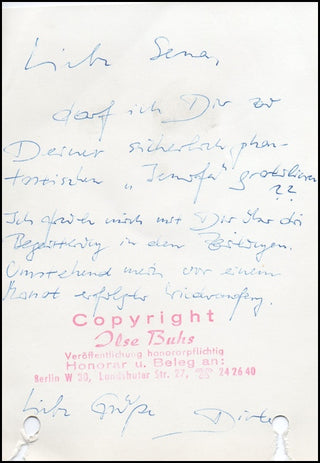 Liebe Sena,
darf ich Dir zu
Deiner sicherlich phan-
tastischen „Jenufa“ gratulieren
??
Ich freue mich mit Dir über die
Begeisterung in den Zeitungen.
Umstehend mein vor einem
Monat erfolgter
Copyright
Ilse Buhs
Veröffentlichung honorarpflichtig
Honorar u. Beleg an:
Berlin W 30, Landshuter Str. 27, 24 26 40
Liebe Grüße